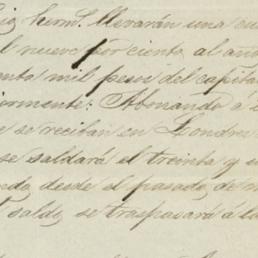 herms. llevarán una cu
l nueve por ciento al año
nta mil pesos del capita
iormente: Abonando á
se recitan en Londre
se saldará el treinta y u
ndo desde el pasado de
saldo se traspasará á la